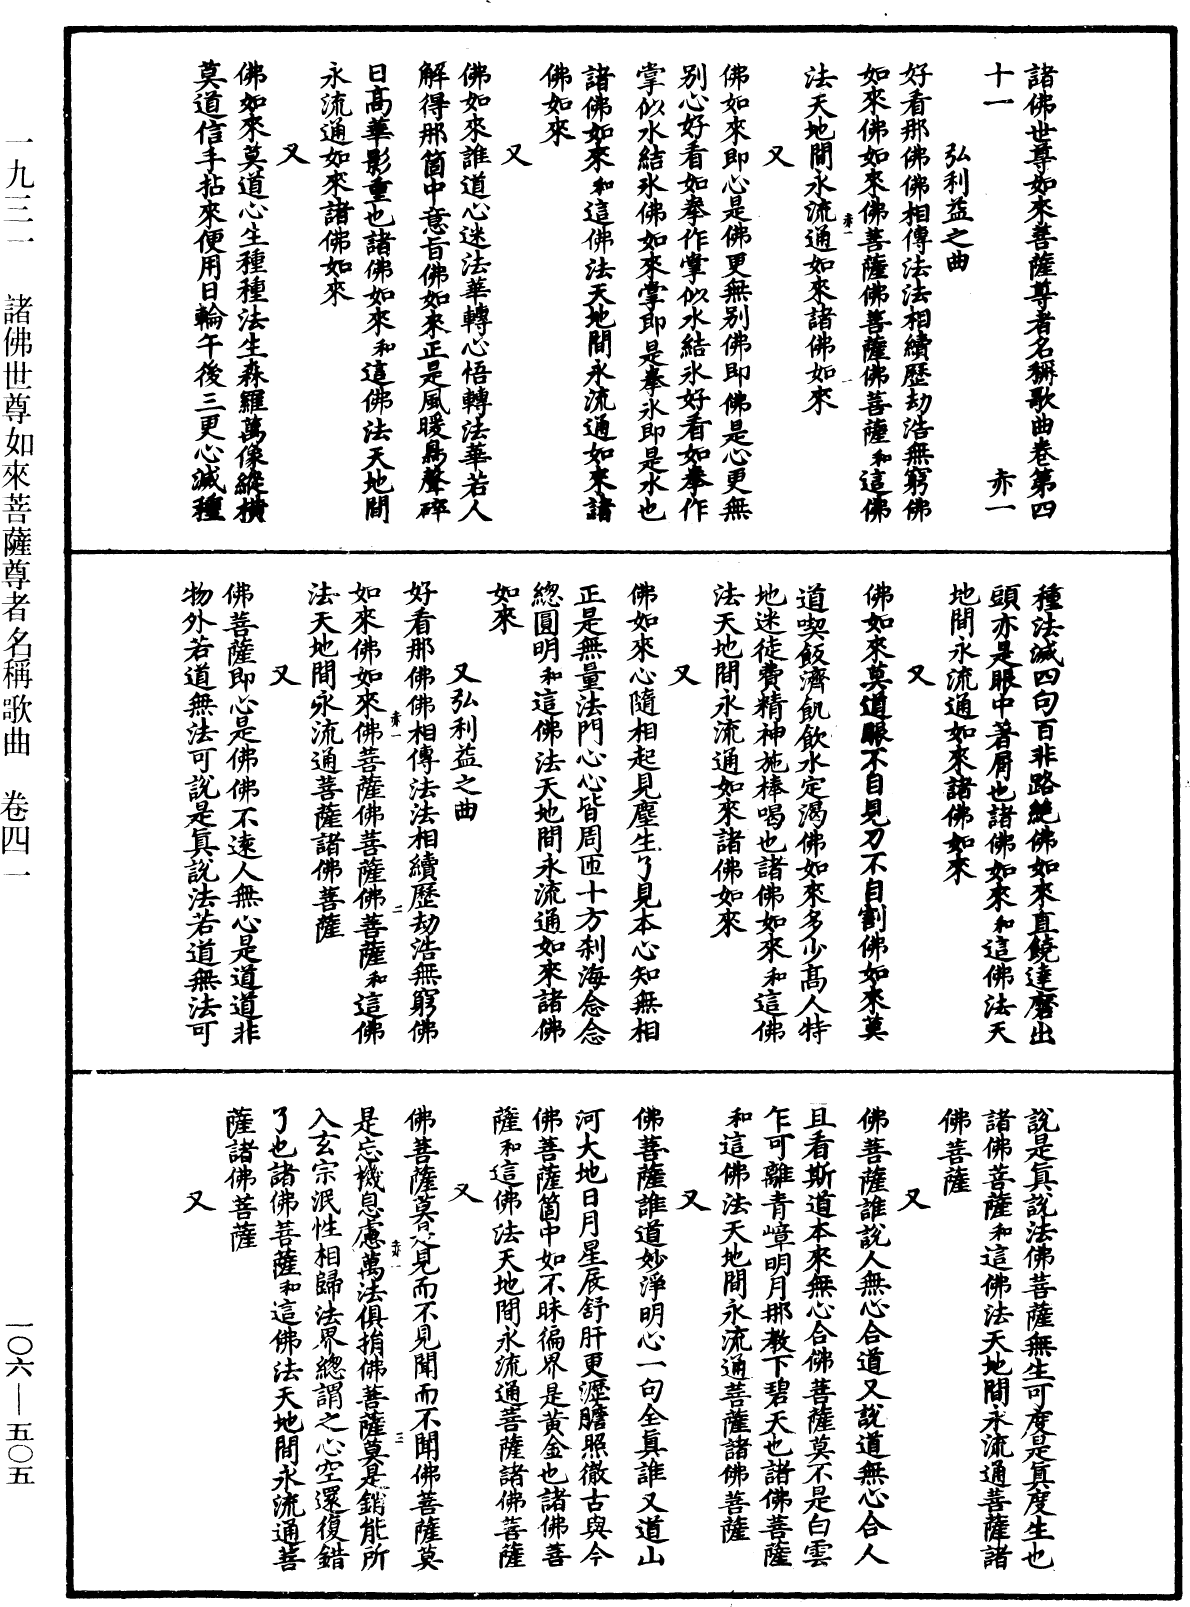 諸佛世尊如來菩薩尊者名稱歌曲卷第四
十一　赤一
弘利益之曲
好看那佛佛相傳法法相續歷劫浩無窮佛
如來佛如來佛菩薩佛菩薩佛菩薩和這佛
法天地間永流通如來諸佛如來
又
佛如來即心是佛更無别佛即佛是心更無
别心好看如拳作掌似水結氷好看如拳作
掌似水結氷佛如來掌即是拳氷即是水也
諸佛如來和這佛法天地間永流通如來諸
佛如來
又
佛如來誰道心迷法華轉心悟轉法華若人
解得那箇中意旨佛如來正是風暖鳥聲碎
日高華影重也諸佛如來和這佛法天地間
永流通如來諸佛如來
又
佛如來莫道心生種種法生森羅萬像縱橫
莫道信手拈來便用日輪午後三更心滅種
種法滅四句百非路絶佛如來直饒達磨出
頭亦是眼中著屑也諸佛如來和這佛法天
地間永流通如來諸佛如來
又
佛如來莫道眼不自見刀不自割佛如來莫
道喫飯濟飢飲水定渴佛如來多少高人特
地迷徒費精神施棒喝也諸佛如來和這佛
法天地間永流通如來諸佛如來
又
佛如來心隨相起見塵生了見本心知無相
正是無量法門心心皆周匝十方刹海念念
總圓明和這佛法天地間永流通如來諸佛
如來
又弘利益之曲
好看那佛佛相傳法法相續歷劫浩無窮佛
如來佛如來佛菩薩佛菩薩佛菩薩和這佛
法天地間永流通菩薩諸佛菩薩
又
佛菩薩即心是佛佛不遠人無心是道道非
物外若道無法可說是真說法若道無法可
說是真說法佛菩薩無生可度是真度生也
諸佛菩薩和這佛法天地間永流通菩薩諸
佛菩薩
又
佛菩薩誰說人無心合道又說道無心合人
且看斯道本來無心合佛菩薩莫不是白雲
乍可離青嶂明月那教下碧天也諸佛菩薩
和這佛法天地間永流通菩薩諸佛菩薩
又
佛菩薩誰道妙淨明心一句全真誰又道山
河大地日月星辰舒肝更瀝膽照徹古與今
佛菩薩箇中如不昧徧界是黃金也諸佛菩
薩和這佛法天地間永流通菩薩諸佛菩薩
又
佛菩薩莫見而不見聞而不聞佛菩薩莫
是忘機息慮萬法俱捐佛菩薩莫是銷能所
入玄宗泯性相歸法界總謂之心空還復錯
了也諸佛菩薩和這佛法天地間永流通菩
薩諸佛菩薩
又
赤一
一
赤一
二
赤一
三
一九三一　諸佛世尊如來菩薩尊者名稱歌曲　卷四一
一〇六—五〇五